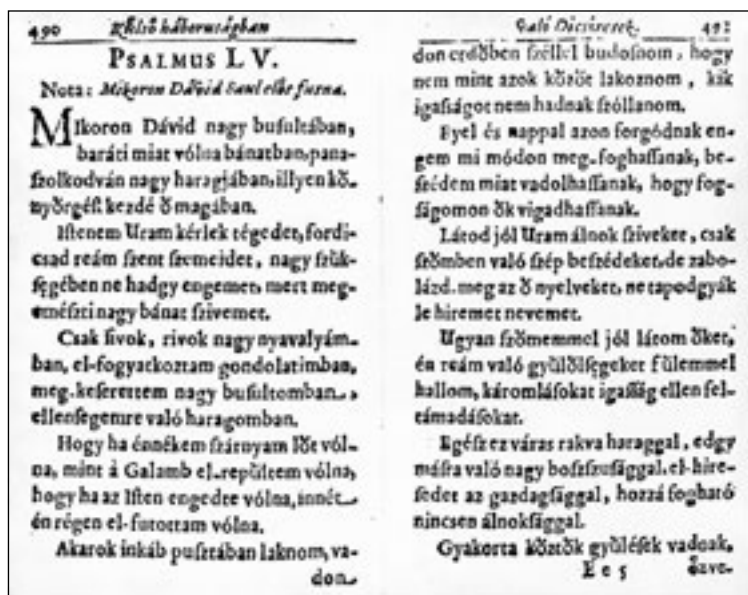 490 Külső háborúságban
PSALMUS LV.
Nota: Mikoron Dávid Saul előt futna.
MIkoron Dávid nagy buſultában,
baráti miat vólna bánatban, pana-
ſzolkodván nagy haragjában, illyen kö-
nyörgéſt kezdé ö magában.
Iſtenem Uram kérlek tégedet, fordi-
csad reám ſzent ſzemeidet, nagy ſzük-
ſégében ne hadgy engemet, mert meg-
eméſzti nagy bánat ſzivemet.
Csak ſivok, rivok nagy nyavalyám-
ban, el-fogyatkoztam gondolatimban,
meg-keſerettem nagy buſultomban,
ellenſegemre való haragomban.
Hogy ha énnékem ſzárnyam löt vól-
na, mint à Galamb el-repültem vólna,
hogy ha az Iſten engedte vólna, innét
én régen el-futottam vólna.
Akarok inkáb puſztában laknom, va-
don-
való Dicsiretek. 491
don erdöben ſzéllel budoſnom, hogy
nem mint azok közöt lakoznom, kik
igaſságot nem hadnak ſzóllanom.
Eyel és nappal azon forgódnak en-
gem mi módon meg-foghaſſanak, be-
ſzédem miat vadolhaſſanak, hogy fog-
ságomon ök vigadhaſſanak.
Látod jól Uram álnok ſziveket, csak
ſzömben való ſzép beſzédeket, de zabo-
lázd-meg az ö nyelveket, ne tapodgyák
le hiremet nevemet.
Ugyan ſzömemmel jól látom öket,
én reám való gyülölſegeket fülemmel
hallom, káromláſokat igaſság ellen fel-
támadáſokat.
Egéſz ez váras rakva haraggal, edgy
máſra való nagy boſzſzuſággal, el-hire-
ſedet az gazdagſággal, hozzá fogható
nincsen álnokſággal.
Gyakorta köztök gyüléſek vadnak,
E e 5